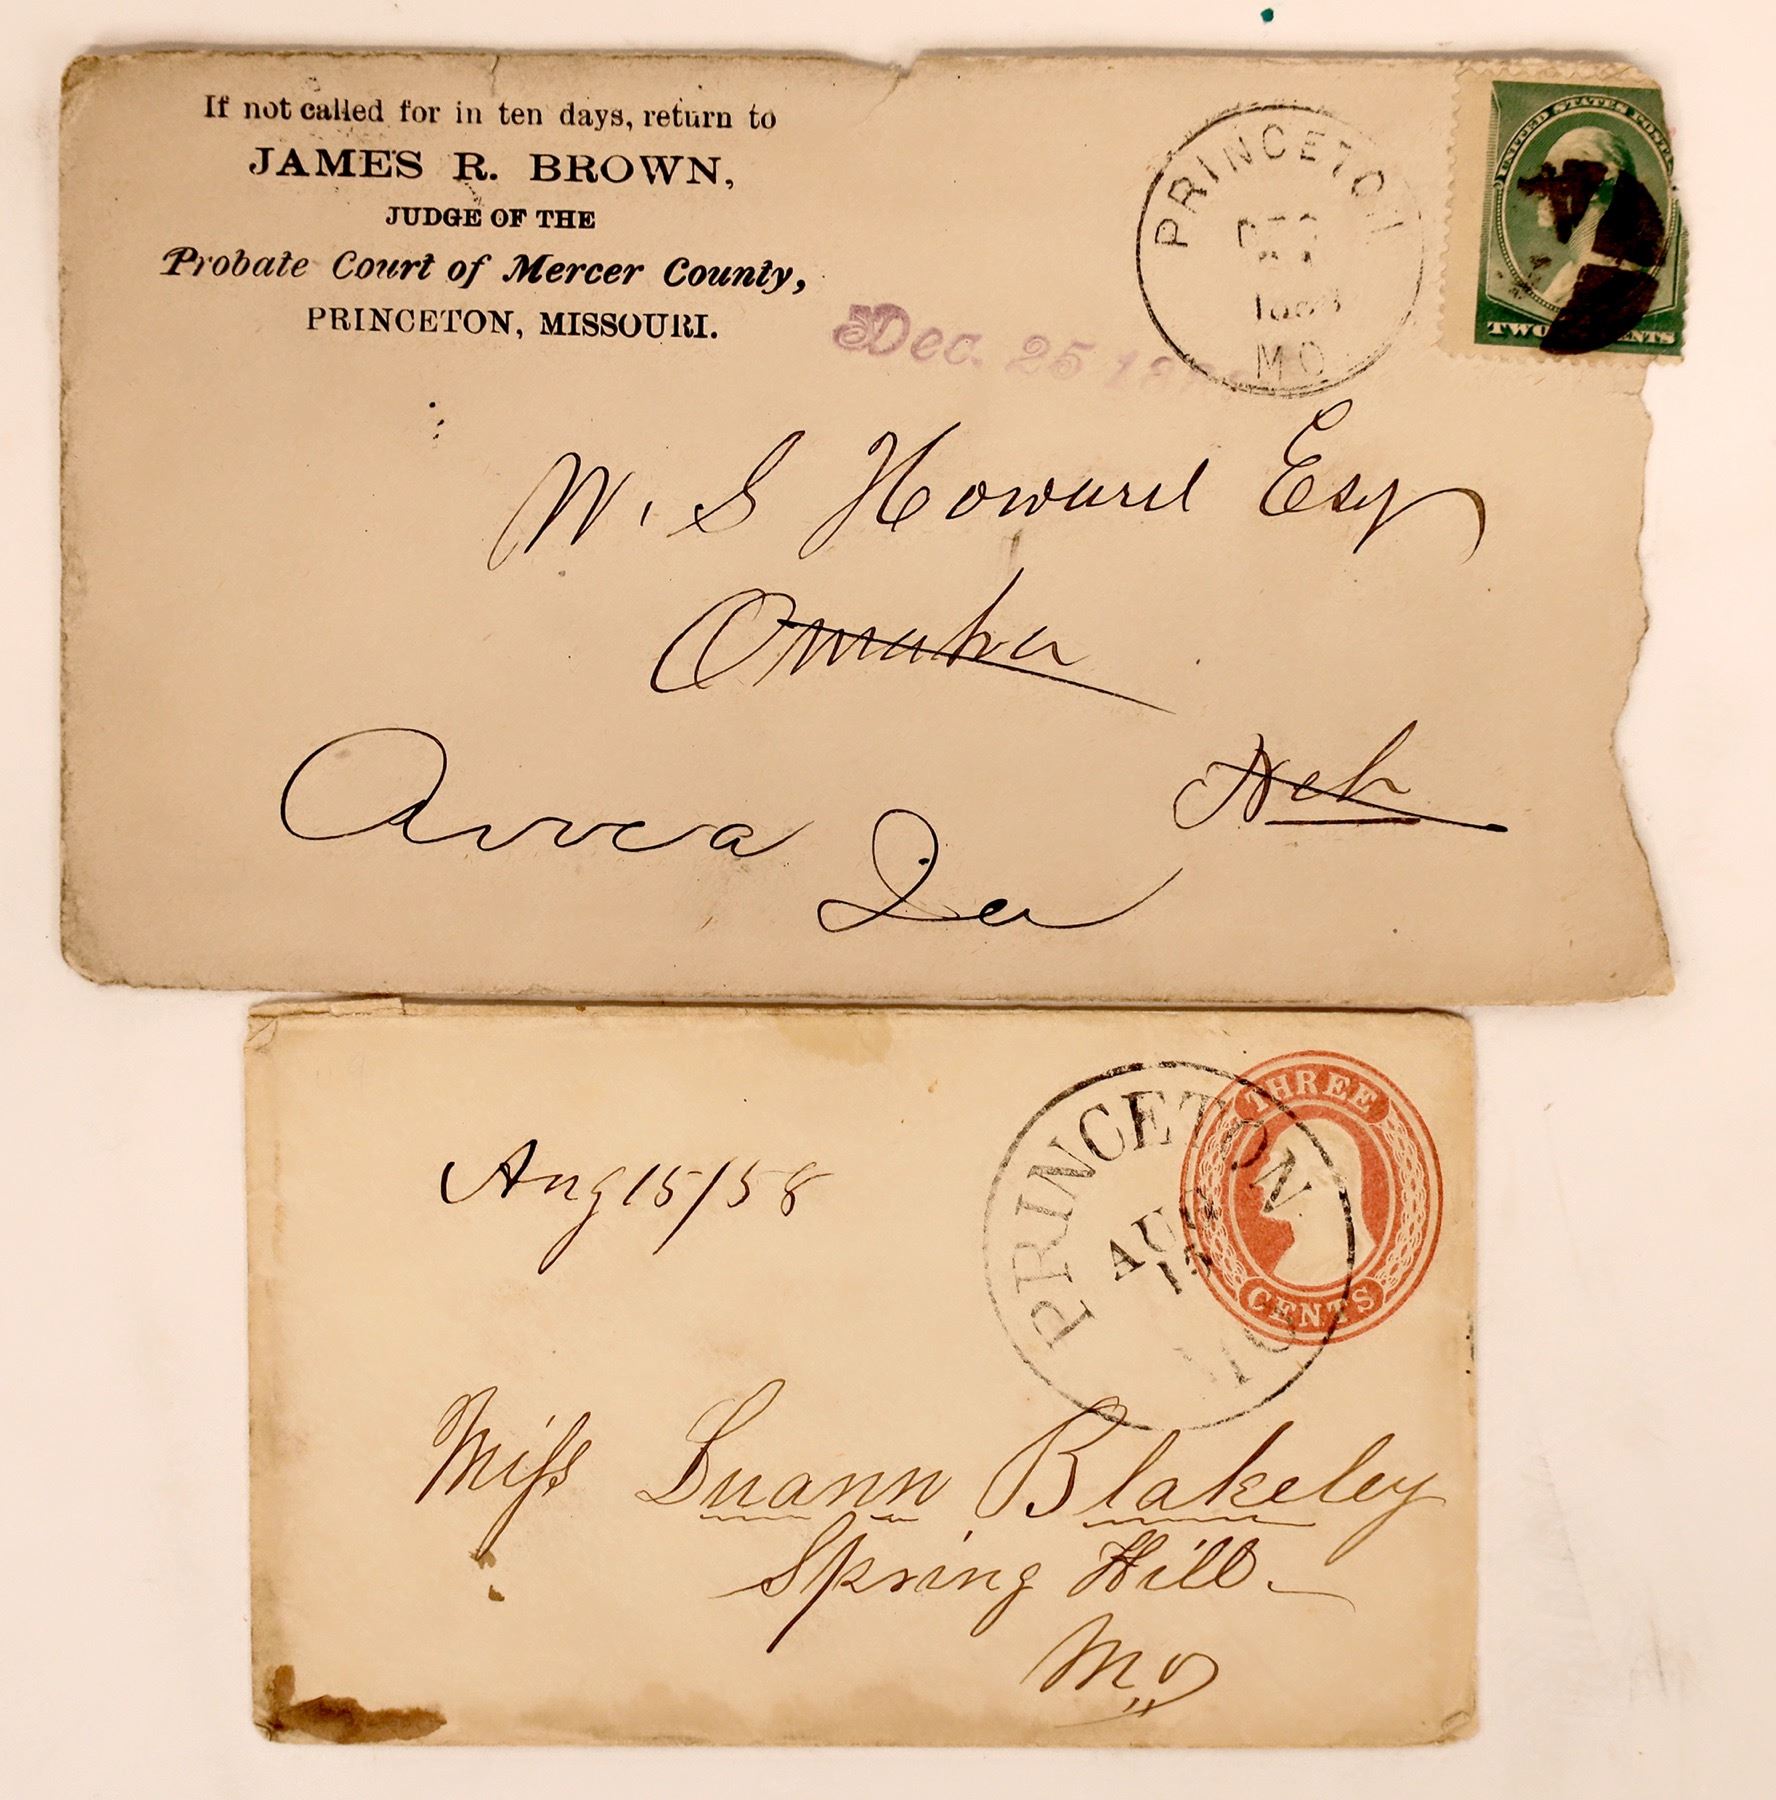 If not called for in ten days, return to
JAMES R. BROWN,
JUDGE OF THE
Probate Court of Mercer County,
PRINCETON, MISSOURI.
Dec. 25
PRINCETON
MO
UNITED STATES POSTAGE
TWO CENTS
W. S Howard Esq
Omaha
Neb
Avoca Ia
THREE
CENTS
PRINCETON
AUG
15
MO
Aug 15/58
Miss Luann Blakeley
Spring Hill
Mo